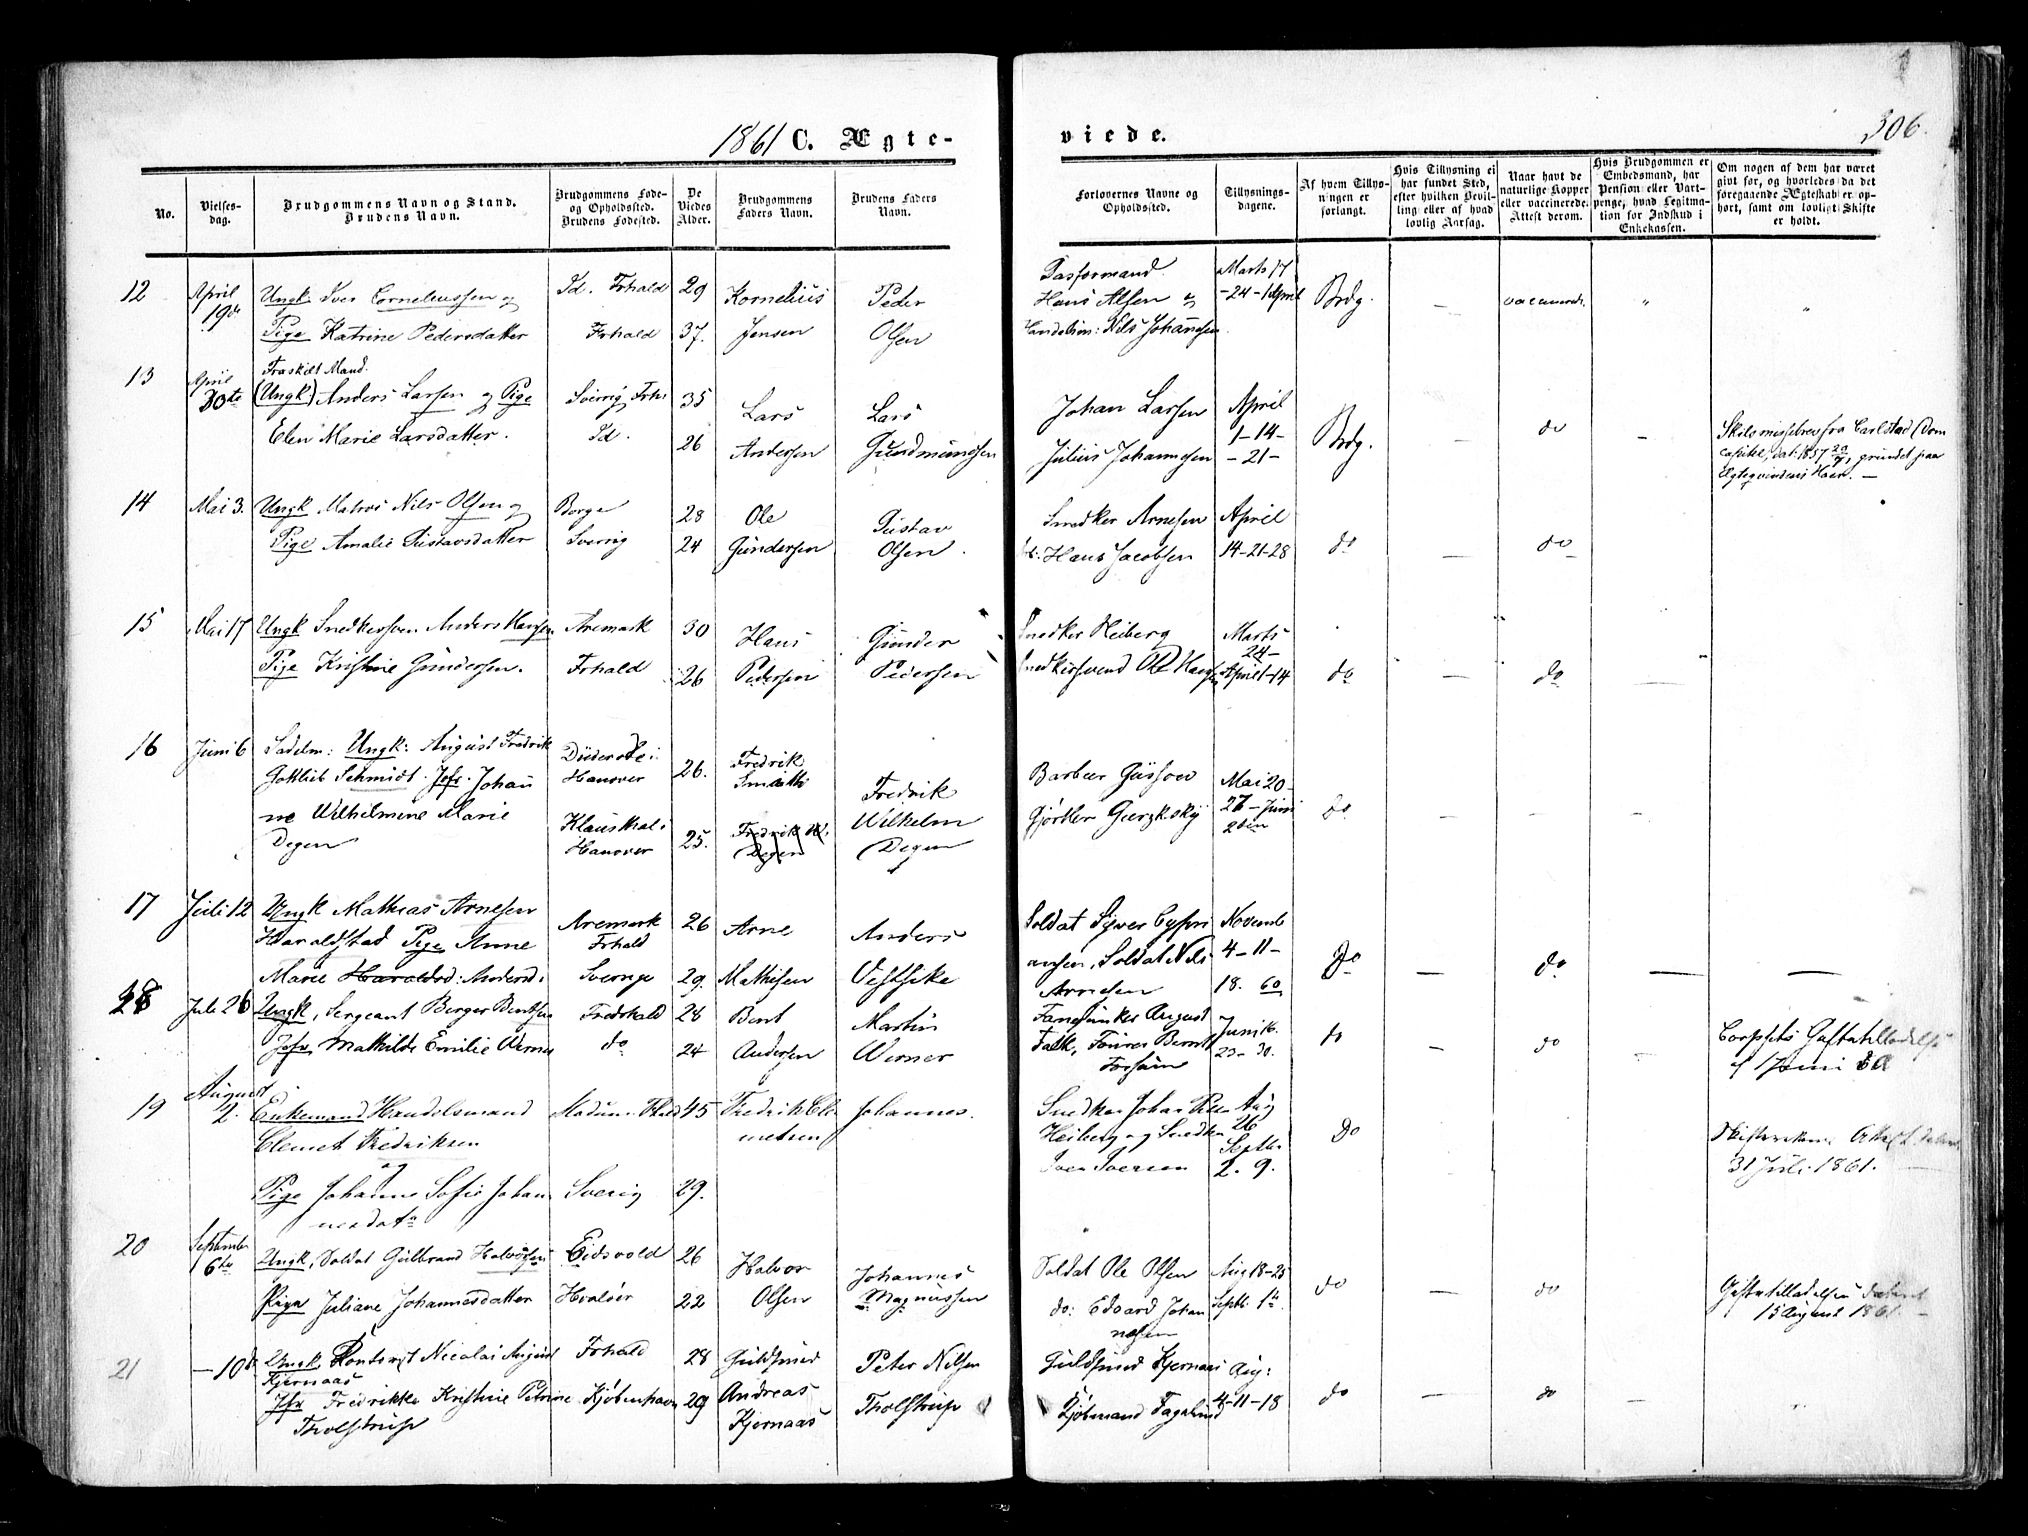 306.
1861 C. Ægte-
viede.
No.
Vielses-
dag.
Brudgommens Navn og Stand.
Brudens Navn.
Brudgommens Føde-
og Opholdssted.
Brudens Fødested.
De
Viedes
Alder.
Brudgommens
Faders Navn.
Brudens Faders
Navn.
Forlovernes Navne og
Opholdssted.
Tillysnings-
dagene.
Af hvem Tillys-
ningen er
forlangt.
Hvis Tillysning ei
har fundet Sted,
efter hvilken Bevil-
ling eller af hvad
lovlig Aarsag.
Naar havt de
naturlige Kopper
eller vaccinerede.
Attest derom.
Hvis Brudgommen er
Embedsmand, har
Pension eller Vart-
penge, hvad Legitima-
tion for Indskud i
Enkekassen.
Om nogen af dem har været
givt før, og hvorledes da det
foregaaende Ægteskab er op-
hørt, samt om lovligt Skifte
er holdt.
12
April
19de
Ungk. Iver Corneliussen og
Pige Katrine Pedersdatter
Id. Frhald
Frhald
29
37.
Kornelius
Jensen
Peder
Olsen
Hans Olsen og
Handelsm: Nils Johannsen
Marts 17
-24-1 April
Brdg.
—
vaccinerede
"
"
13
April
30te
Fraskilt Mand.
(Ungk) Anders Larsen og Pige
Elen Marie Larsdatter.
Sverrig Frh
Id.
35
26
Lars
Andersen
Lars
Gundmundsen
Johan Larsen
Julius Johannesen
April
1-14-
-21-
Brdg.
—
do
—
Skilsmissebrev fra Carlstad Dom
capitel, dat. 1857 20/7, grundet paa
Egteqvindens Hoer. —
14
Mai 3.
Ungk Matros Nils Olsen og
Pige Amalie Gustavsdatter
Borge
Sverrig
28
24
Ole
Gundersen
Gustav
Olsen.
Snedker Arnesen
Hans Jacobsen
April
14-21-28
do
—
do
15
Mai 17
Ungk Snedkersven Anders Hansen
Pige Kristine Gundersen.
Aremark
Frhald
30
26
Hans
Pedersen
Gunder
Pedersen
Snedker Heiberg
Snedkersvend Ole Hansen
Marts
24-
April 1-14
do
—
do
—
16
Juni 6
Sadelm: Ungk: August Fredrik
Gottlieb Schmidt. Jfr. Johan
ne Wilhelmine Marie
Degen
Hanover
Klausthal i
Hanover
26.
25.
Fredrik
Fredrik W.
Degen
Fredrik
Wilhelm
Degen
Barbeer Gussow
Gjørtler
Mai 20-
27-Juni
2den
do
—
—
—
17
Juli 12
Ungk Mathias Arnesen
Haraldstad Pige Anne
Marie Haraldsd: Andersd:
Aremark
Frhald
Sverrige
26
29.
Arne
Mathisen
Anders
Soldat Syver Cypri
ansen, Soldat Nils
Arnesen
Novemb
4-11-
18. 60
Do
—
do
—
—
18
Juli 26
Ungk, Sergeant Berger Bentsen
Jfr Mathilde Emilie Werner
Fredshald
do
28
24
Bent
Andersen
Martin
Werner
Fanejunker August
Falk, Fourer Bernt
Juni 16.
23-30.
do
—
do
—
Corpsets Giftetilladelse
af 1 Juni
19
August
2.
Enkemand Handelsmand
Clemet Fredriksen
og
Pige Johanne Sofie Johan
nesdatr
Sverig
45
29.
Fredrik Cle
metsen
Johannes.
Snedker Johan
Heiberg og Snedker
Iver Iversen
Aug
26
Septbr
2. 9.
Do
—
—
—
Skifterettens Attest dateret
31 Juli 1861.
20
September
6te
Ungk, Soldat Gulbrand Halvorsen
Pige Juliane Johannesdatter
Eidsvold
Hvaløer
26
22
Halvor
Olsen
Johannes
Magnussen
Soldat Ole Olsen
do: Edvard Johan
nesen
Aug 18-25
Septb. 1te
do
—
do
—
Giftetilladelsen dateret
15 August 1861
21
—10de
Ungk Kontorist Nicolai August
Kjernaas
Jfr Fredrikke Kristine Petrine
Tholstrup
Frhald
Kjøbenhavn
28
29
Guldsmed
Andreas
Kjernaas
Peter Nilsen
Tholstrup
Guldsmed Kjernaas
Kjøbmand Fagelund
Aug:
4-11-18
do
—
do
—